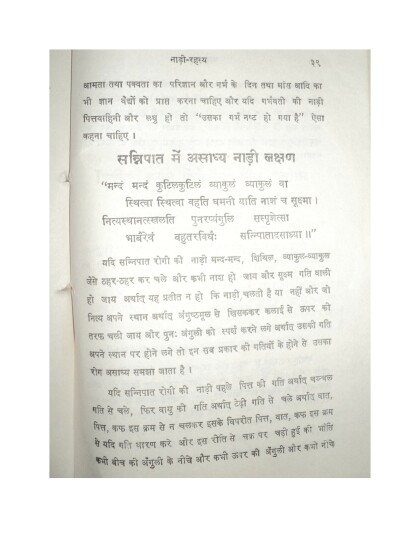 नाड़ी-रहस्य ३९
क्षामता तथा पक्वता का परिज्ञान और गर्भ के दिन तथा मांस आदि का
भी ज्ञान वैद्यों को प्राप्त करना चाहिए और यदि गर्भवती की नाड़ी
पित्तवाहिनी और लघु हो तो “उसका गर्भ नष्ट हो गया है” ऐसा
कहना चाहिए ।
सन्निपात में असाध्य नाड़ी लक्षण
“मन्दं मन्दं कुटिलकुटिलं व्याकुलं व्याकुलं वा
स्थित्वा स्थित्वा वहति धमनी याति नाशं च सूक्ष्मा ।
नित्यस्थानत्स्खलति पुनरप्यंगुलि संस्पृशेत्सा
भावैरेवं बहुतरविधैः सन्निपातादसाध्या ॥”
यदि सन्निपात रोगी की नाड़ी मन्द-मन्द, शिथिल, व्याकुल-व्याकुल
जैसे ठहर-ठहर कर चले और कभी नाश हो जाय और सूक्ष्म गति वाली
हो जाय अर्थात् यह प्रतीत न हो कि नाड़ी चलती है या नहीं और जो
नित्य अपने स्थान अर्थात् अंगुष्ठमूल से खिसककर कलाई से ऊपर की
तरफ चली जाय और पुनः अंगुली को स्पर्श करने लगे अर्थात् उसकी गति
अपने स्थान पर होने लगे तो इन सब प्रकार की गतियों के होने से उसका
रोग असाध्य समझा जाता है ।
यदि सन्निपात रोगी की नाड़ी पहले पित्त की गति अर्थात् चञ्चल
गति से चले, फिर वायु की गति अर्थात् टेढ़ी गति से चले अर्थात् वात,
पित्त, कफ इस क्रम से न चलकर इसके विपरीत पित्त, वात, कफ इस क्रम
से यदि गति धारण करे और इस रीति से चक्र पर चढ़ी हुई की भाँति
कभी बीच की अँगुली के नीचे और कभी ऊपर की अँगुली और कभी नीचे